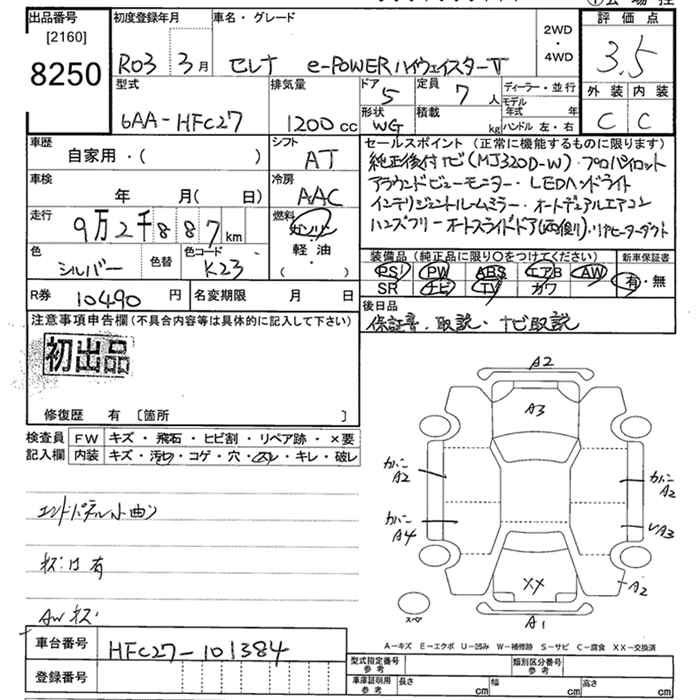 出品番号
[2160]
8250
初度登録年月
R03 3月
車名・グレード
セレナ e-POWER ハイウェイスターV
2WD
・
4WD
評価点
3.5
外装 内装
C C
型式
6AA-HFC27
排気量
1200cc
ドア
5
形状
WG
定員
7人
積載
kg
ディーラー・並行
モデル
年式 年
ハンドル 左・右
車歴
自家用・( )
シフト
AT
車検
年 月( 日)
冷房
AAC
走行
9万2千887km
燃料
ガソリン
軽油
・
( )
色
シルバー
色替
色コード
K23
R券 10490円
名変期限 月 日
セールスポイント (正常に機能するものに限ります)
純正後付ナビ(MJ320D-W)・プロパイロット
アラウンドビューモニター・LEDヘッドライト
インテリジェントルームミラー・オートデュアルエアコン
ハンズフリーオートスライドドア(両側)・リヤヒーターダクト
装備品 (純正品に限り○をつけてください)
新車保証書
PS PW ABS エアB AW
SR ナビ TV カワ
有・無
後日品
保証書・取説・ナビ取説
注意事項申告欄(不具合内容等は具体的に記入して下さい)
初出品
修復歴 有 〔箇所 〕
検査員
記入欄
FW キズ・飛石・ヒビ割・リペア跡・×要
内装 キズ・汚れ・コゲ・穴・スレ・キレ・破レ
エンドパネル小曲り
キズ凹有
AWキズ
車台番号 HFC27-101384
登録番号
A2
A3
カバン
A2
カバン
A2
カバン
A4
A3
XX
A2
A1
スペア
A-キズ E-エクボ U-凹み W-補修跡 S-サビ C-腐食 XX-交換済
型式指定番号
参考
類別区分番号
参考
車庫証明用
参考
長さ cm 幅 cm 高さ cm